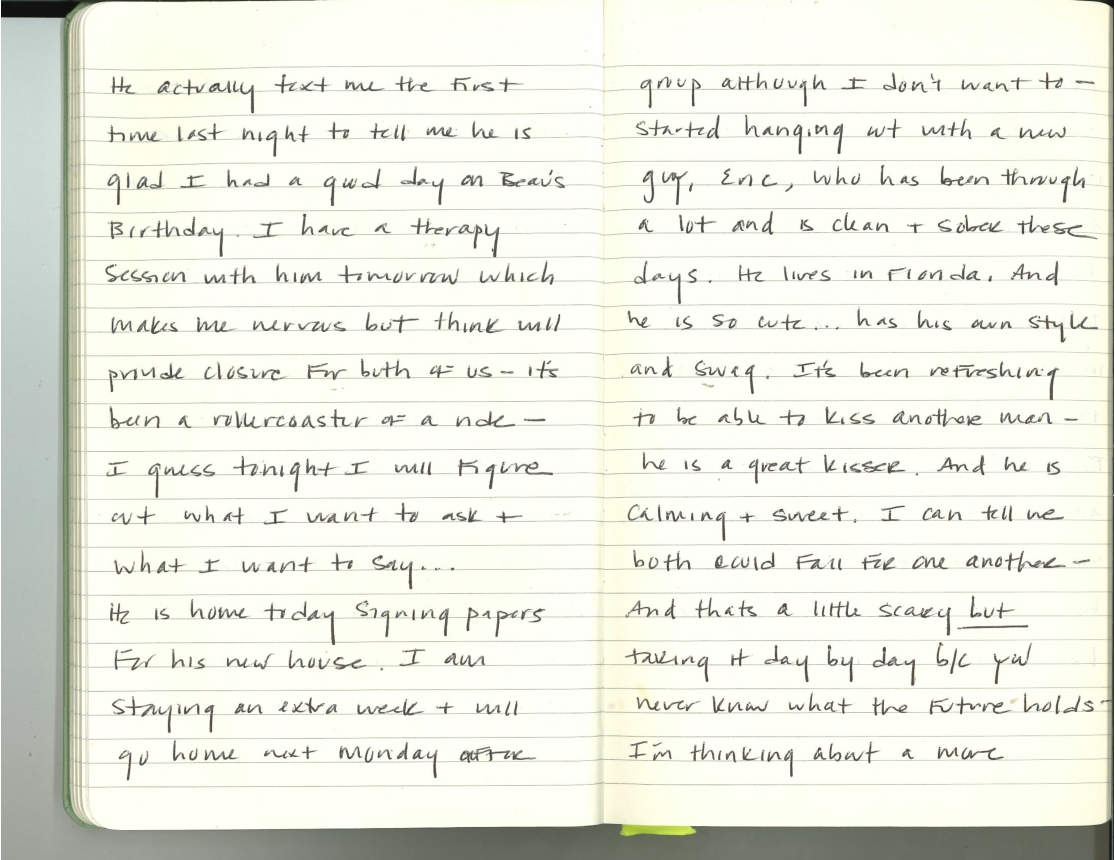 He actually text me the first
time last night to tell me he is
glad I had a good day on Beau's
Birthday. I have a therapy
session with him tomorrow which
makes me nervous but think will
provide closure for both of us - it's
been a rollercoaster of a ride -
I guess tonight I will figure
out what I want to ask +
what I want to say...
He is home today signing papers
for his new house. I am
staying an extra week + will
go home next Monday after
group although I don't want to -
started hanging out with a new
guy, Eric, who has been through
a lot and is clean + sober these
days. He lives in Florida. And
he is so cute... has his own style
and swag. It's been refreshing
to be able to kiss another man -
he is a great kisser. And he is
calming + sweet. I can tell we
both could fall for one another -
And thats a little scary but
taking it day by day b/c you
never know what the future holds -
I'm thinking about a more